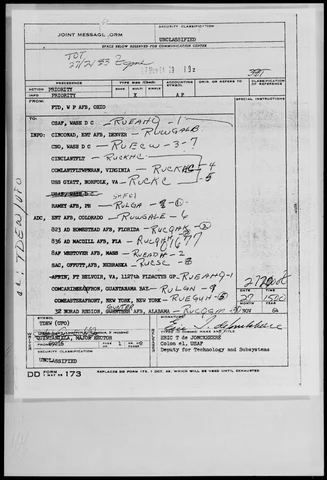 JOINT MESSAGE FORM
SECURITY CLASSIFICATION
UNCLASSIFIED
SPACE BELOW RESERVED FOR COMMUNICATION CENTER
TOT
27/21 53 Z
PRECEDENCE
TYPE MSG (Check)
ACCOUNTING SYMBOL
ACTION PRIORITY
INFO PRIORITY
X
AF
FROM:
FTD, W P AFB, OHIO
CSAF, WASH D C RUEAHQ-1
INFO: CINCONAD, ENT AFB, DENVER - RUWGALB
CNO, WASH D C - RUECW-3-7
CINCLANTFLT - RUCKHC
COMLANTFLTWPNRAN, VIRGINIA - RUCKHC-4
USS GYATT, NORFOLK, VA - RUCKC -5
RAMEY AFB, PR - RULGA
ADC, ENT AFB, COLORADO - RUWGALE-6
823 AD HOMESTEAD AFB, FLORIDA - RUCQHK-2
836 AD MACDILL AFB, FLA - RUCQHM
8AF WESTOVER AFB, MASS - RUEADH-2
SAC, OFFUTT, AFB, NEBRASKA - RUCSC-8
AFTIN, FT BELVOIR, VA, 1127th FLDACTYS GP - RUEAHQ-1
COMCARIBSEAFRON, GUANTANAMO BAY - RULGN-9
COMEASTSEAFRONT, NEW YORK, NEW YORK - RUEGUH-5
GUNTER
32 NORAD REGION, GUENTHER AFB, ALABAMA - RUCQGM-9
2720508
27 1500
NOV 64
TDEW (UFO)
QUINTANILLA, MAJOR HECTOR
69216
1
ERIC T de JONCKHEERE
Colonel, USAF
Deputy for Technology and Subsystems
SECURITY CLASSIFICATION
UNCLASSIFIED
DD FORM 173
1 MAY 55
REPLACES DD FORM 173, 1 OCT. 49, WHICH WILL BE USED UNTIL EXHAUSTED